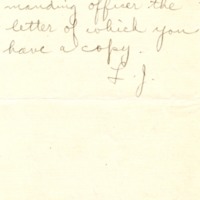 manding officer the
letter of which you
have a copy.
F. J.